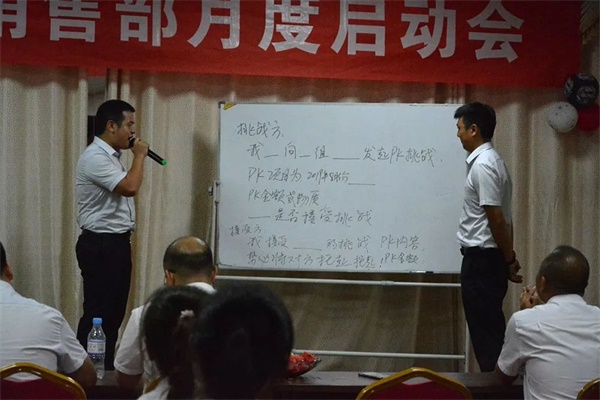 销售部月度启动会
挑战方:
我__向__组____发起PK挑战.
PK项目为2019年8月份____
PK金额或物质
____是否接受挑战
接受方:
我接受____的挑战 PK内容.
PK金额